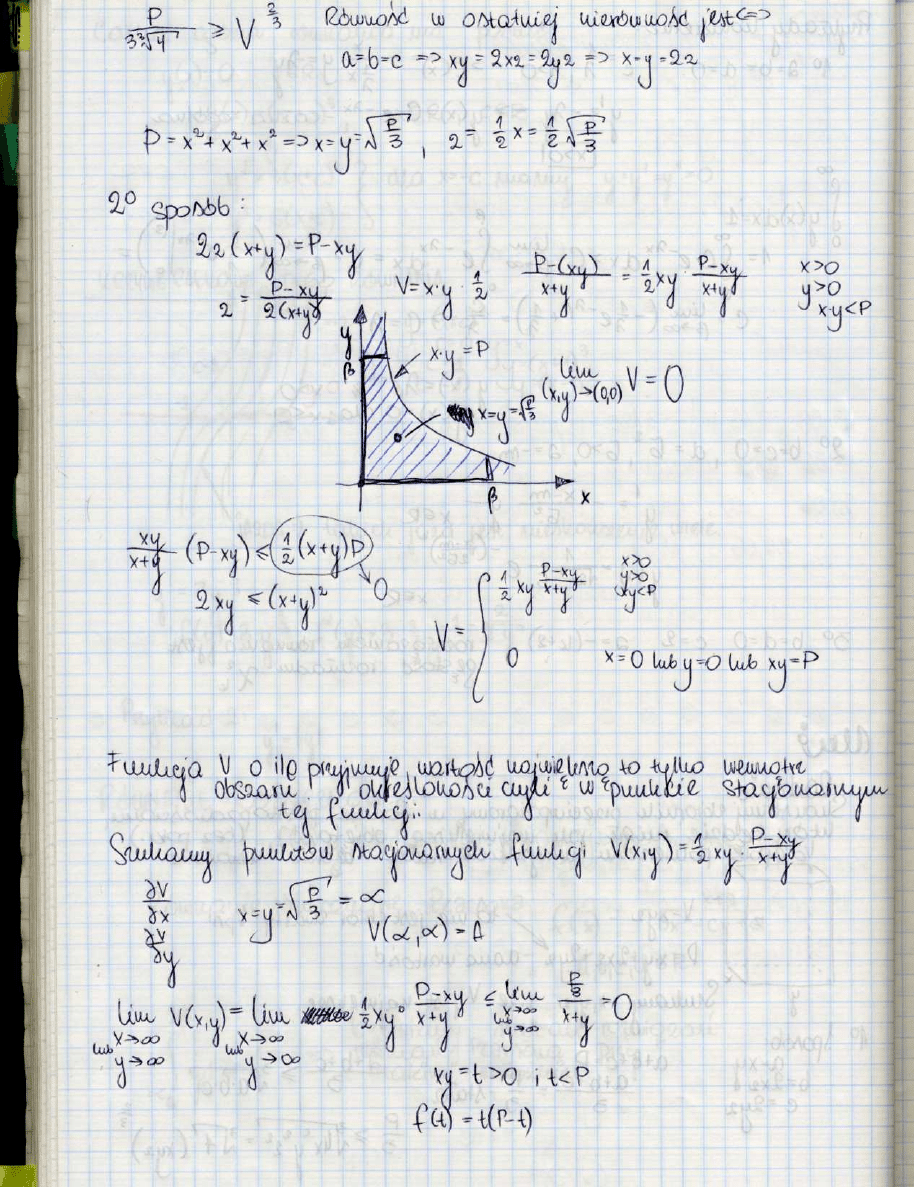 P/(3∛4) ≥ V^(2/3) Równość w ostatniej nierówność jest <=>
a=b=c => xy = 2xz = 2yz => x=y=2z
P = x²+x²+x² => x=y=√(P/3), z = 1/2 x = 1/2 √(P/3)
2° sposób:
2z(x+y) = P-xy
z = (P-xy)/(2(x+y)) V = x·y·1/2 (P-(xy))/(x+y) = 1/2 xy · (P-xy)/(x+y) x>0
y>0
x·y<P
y
β
x·y = P
lim (x,y)→(0,0) V = 0
x=y=√(P/3)
β x
xy/(x+y) (P-xy) ≤ 1/2 (x+y)P → 0
2xy ≤ (x+y)²
V = { 1/2 xy (P-xy)/(x+y) x>0 y>0 xy<P
0 x=0 lub y=0 lub xy=P
Funkcja V o ile przyjmuje wartość największą to tylko wewnątrz
obszaru określoności czyli w punkcie stacjonarnym
tej funkcji.
Szukamy punktów stacjonarnych funkcji V(x,y) = 1/2 xy · (P-xy)/(x+y)
∂V/∂x x=y=√(P/3) = α
∂V/∂y V(α,α) = A
lim V(x,y) = lim 1/2 xy · (P-xy)/(x+y) ≤ lim (P/8)/(x+y) = 0
x→∞ x→∞ x→∞
lub lub lub
y→∞ y→∞ y→∞
xy = t > 0 i t < P
f(t) = t(P-t)